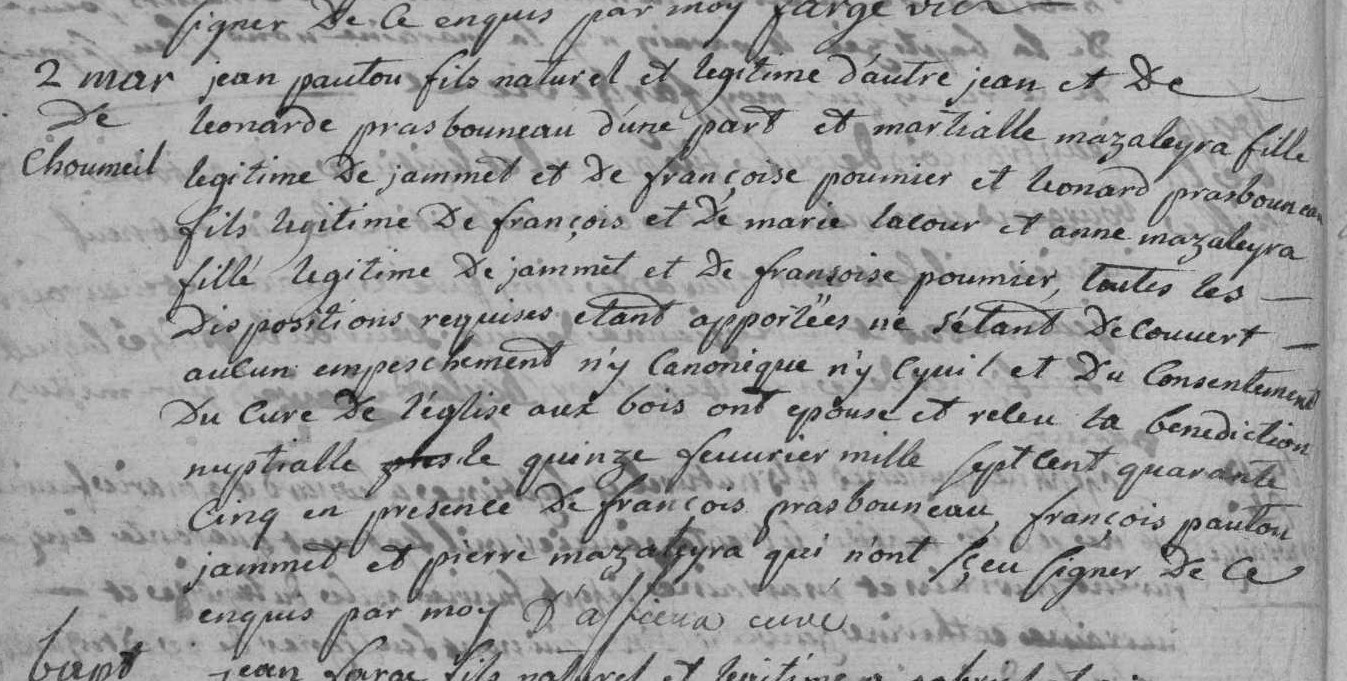 signer De Ce enquis par moy farge vic
2 mar
De
Choumeil
jean pautou fils naturel et legitime d'autre jean et De
leonarde prasbouneau d'une part et martialle mazaleyra fille
legitime De jammet et de françoise poumier et leonard prasbouneau
fils legitime De françois et De marie lacour et anne mazaleyra
fille legitime De jammet et De fransoise poumier, toutes les
Dispositions requises etant apportées ne s'etant Decouvert
aucun empeschement n'y Canonique n'y Cyuil et Du Consentement
Du Cure De l'église aux bois ont epouse et receu la benediction
nuptialle le quinze feuurier mille sept cent quarante
Cinq en presence De françois prasbouneau, françois pautou
jammet et pierre mazaleyra qui n'ont sçeu signer De Ce
enquis par moy curé
bapt
jean farge fils naturel et legitime